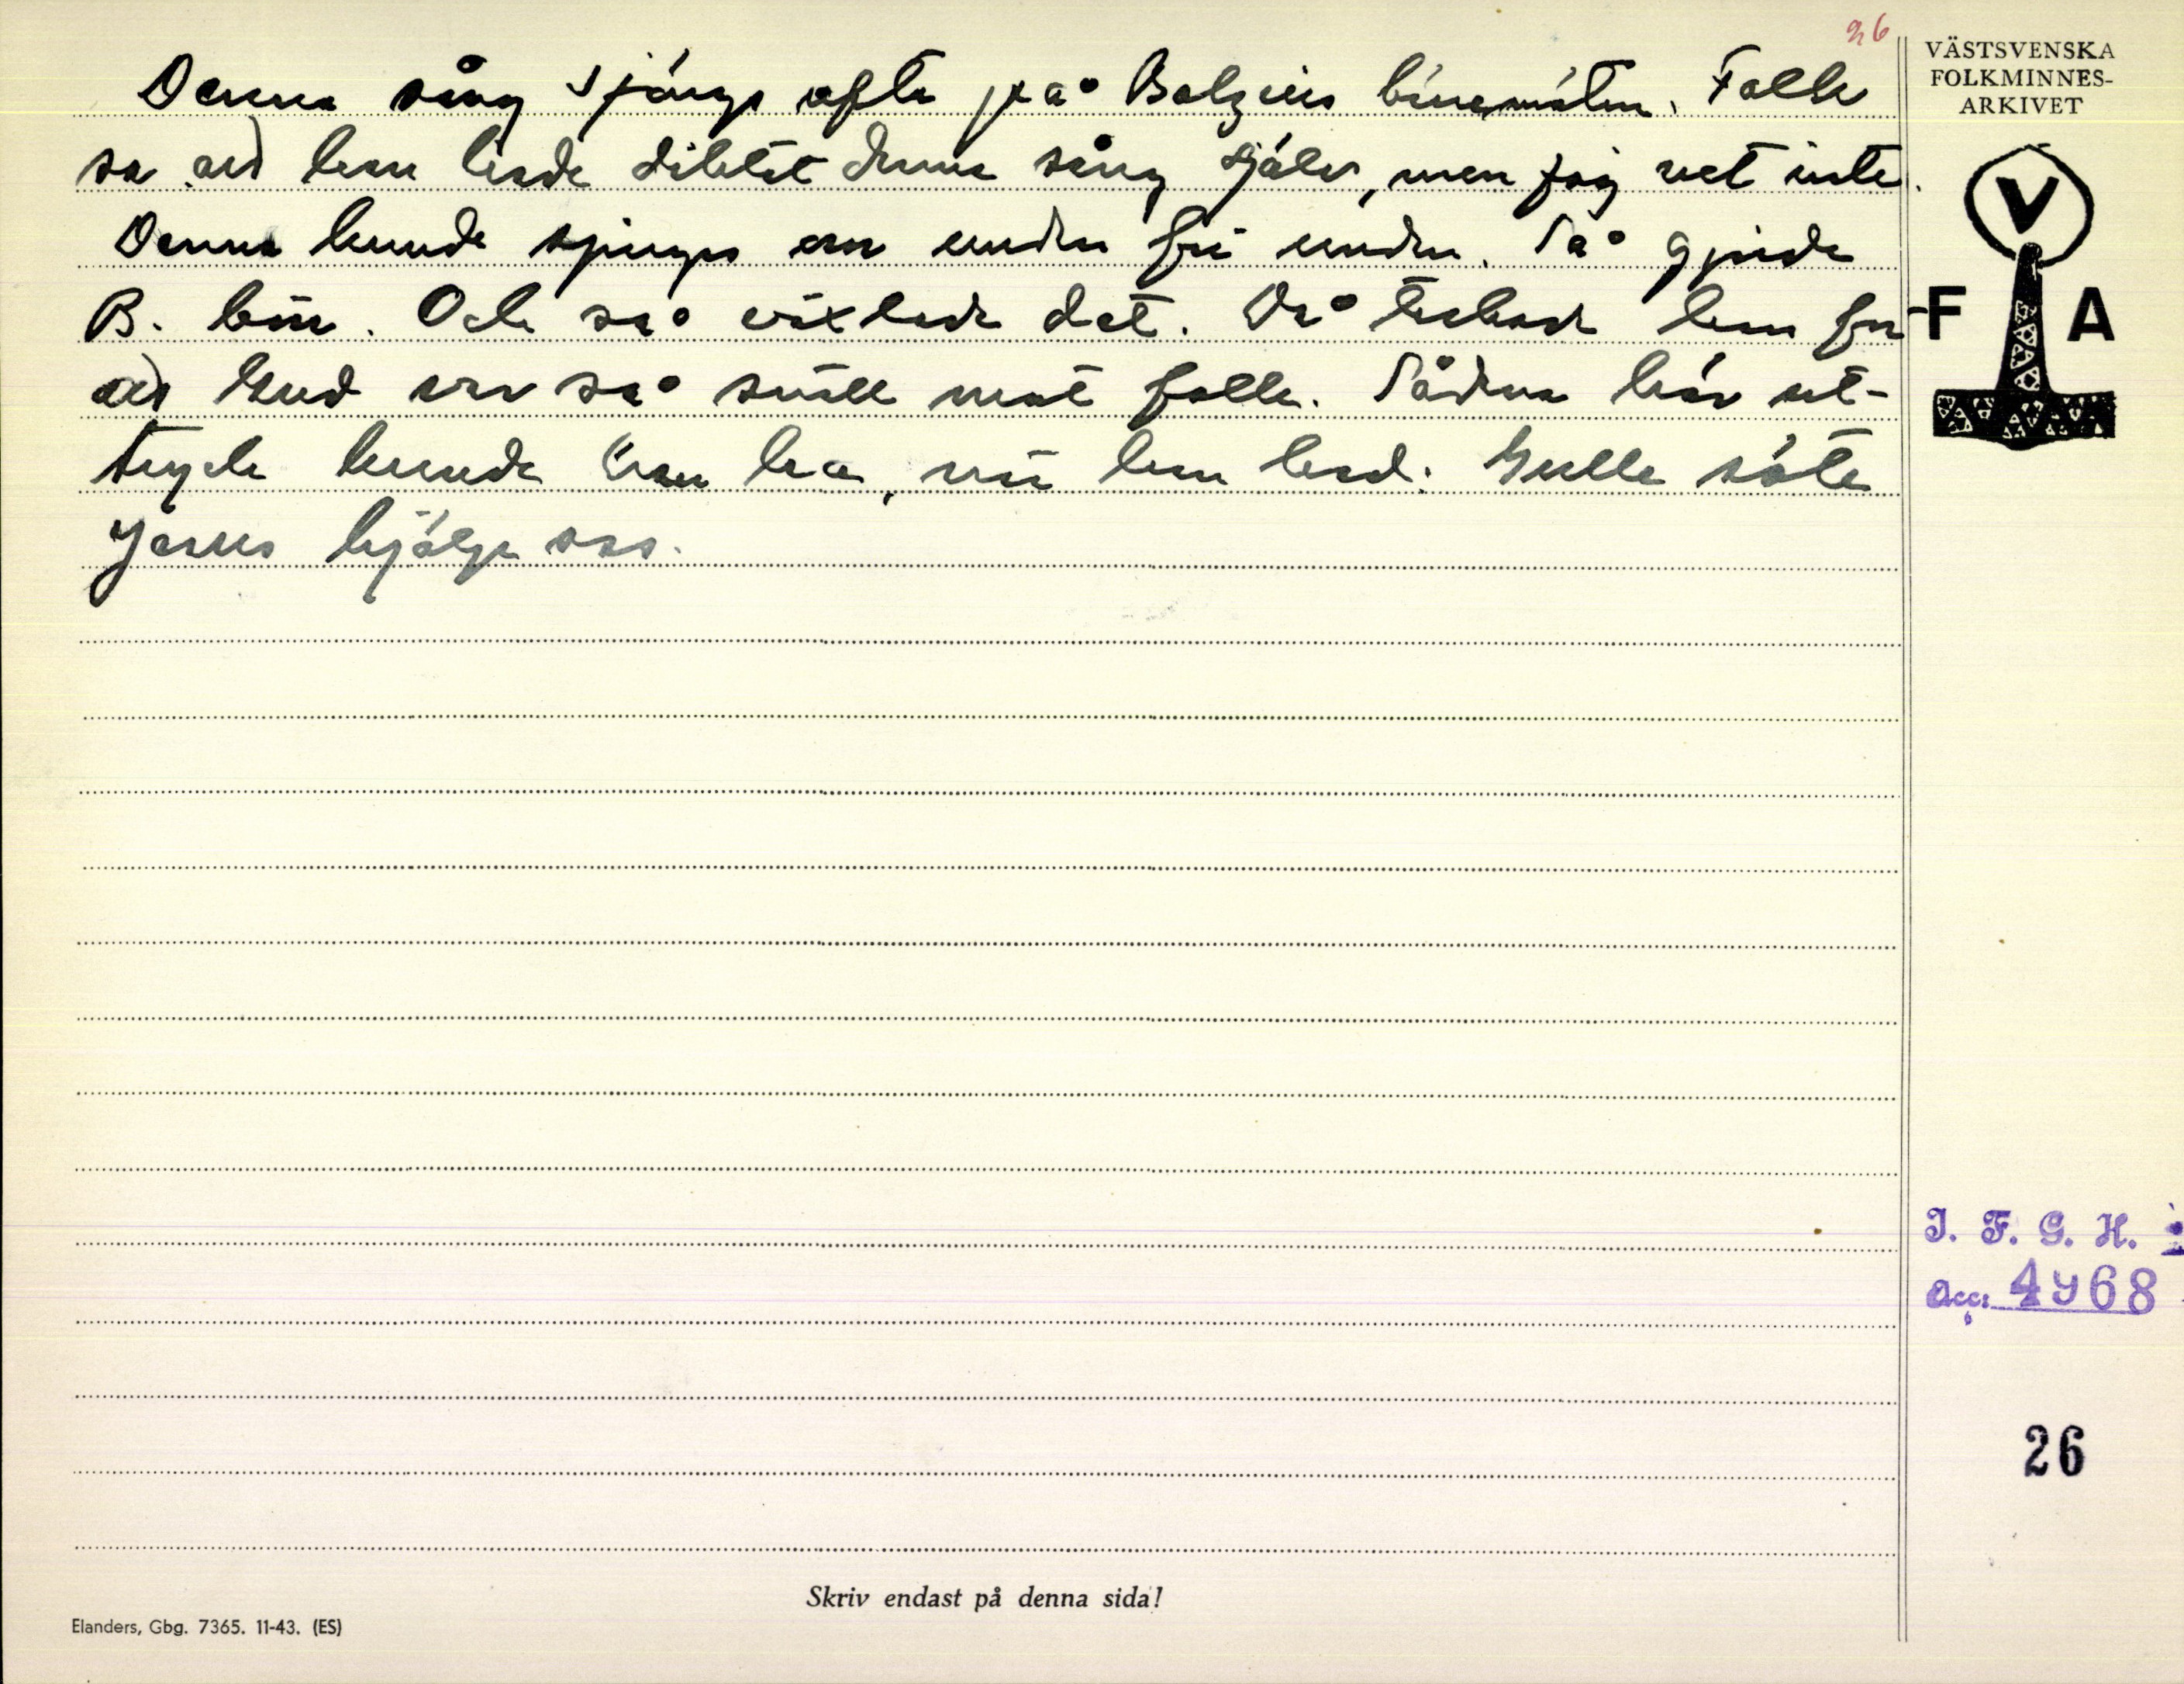 26
Denna sång sjöngs ofta på Bolzius bönemöten. Folk
sa att han hade diktat denna sång själv, men jag vet inte.
Denna kunde sjunges om undan för undan. Så gjorde
B. bön. Och så växlade det. Då tackade han för
att Gud var så snäll mot folk. Sådna här ut-
tryck kunde han ha, när han bad: Gulle söte
Jesus hjälp oss.
VÄSTSVENSKA
FOLKMINNES-
ARKIVET
V
F A
I. F. G. H.
Acc: 4968
26
Skriv endast på denna sida!
Elanders, Gbg. 7365. 11-43. (ES)